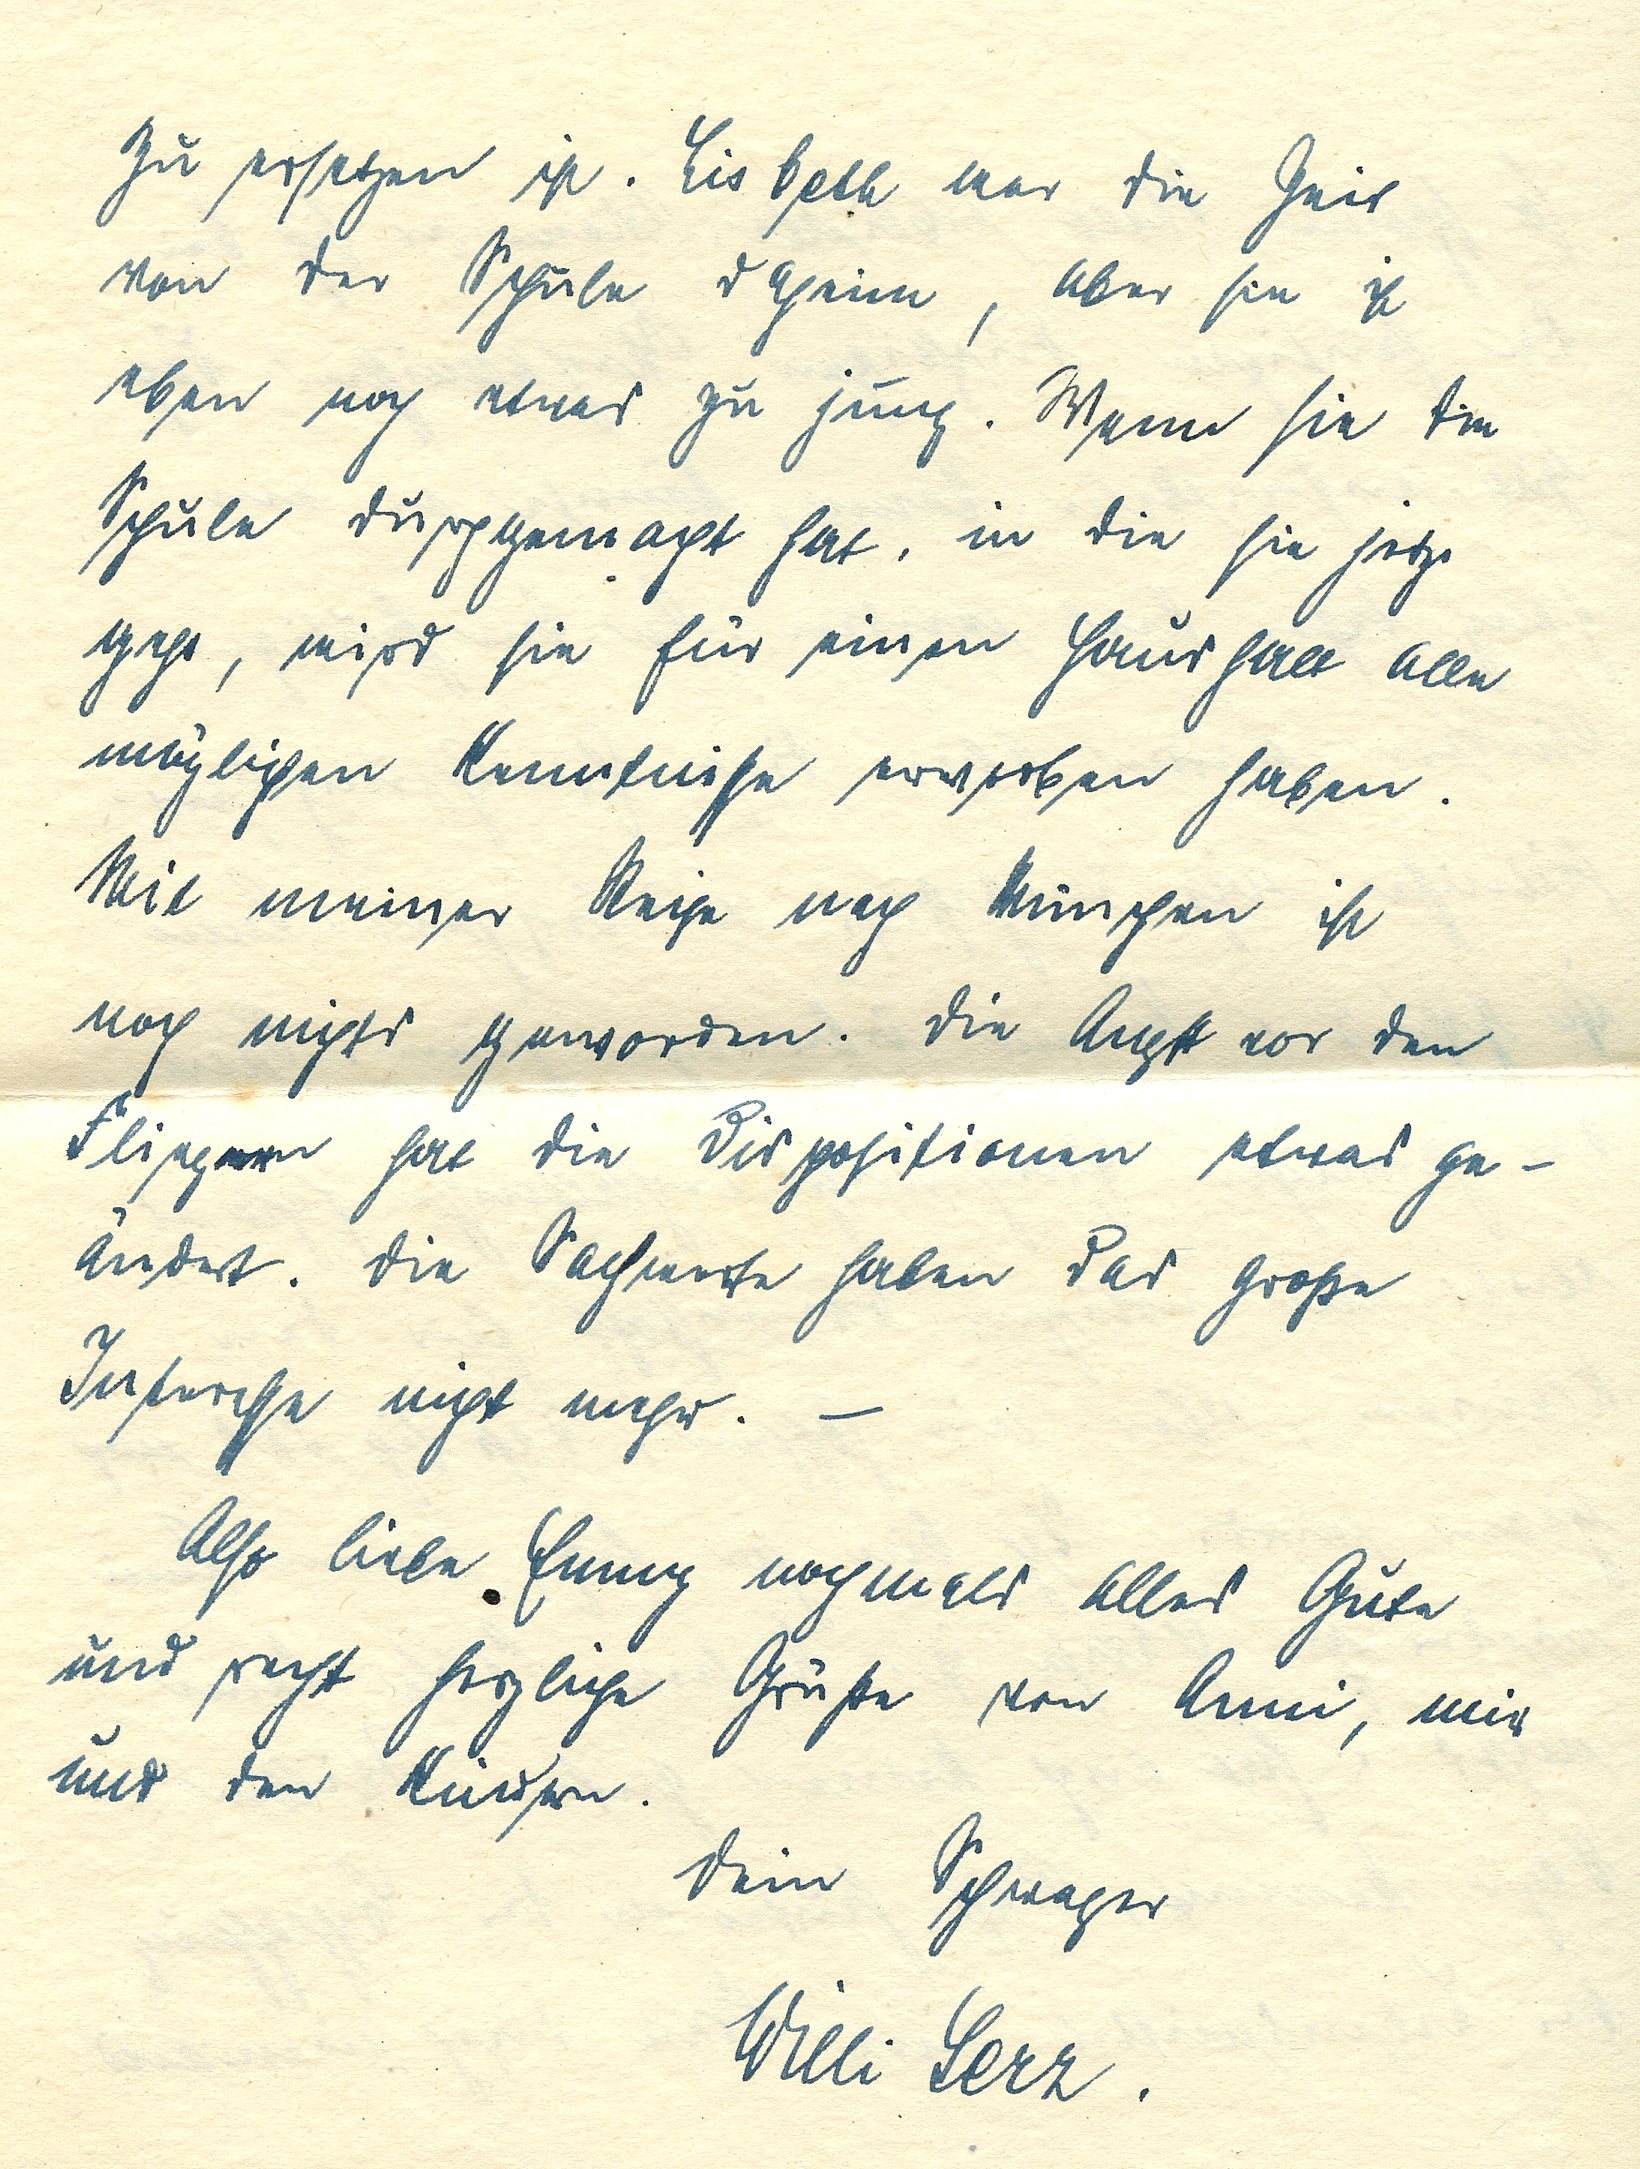 zu ersetzen ist. Lisbeth war die Zeit
von der Schule daheim, aber sie ist
eben noch etwas zu jung. Wenn sie die
Schule durchgemacht hat, in die sie jetzt
geht, wird sie für einen Haushalt alle
möglichen Kenntnisse erworben haben.
Mit meiner Reise nach München ist
noch nichts geworden. Die Angst vor den
Fliegern hat die Dispositionen etwas ge-
ändert. Die Sachwerte haben das große
Interesse nicht mehr. –
Also liebe Emmy nochmals alles Gute
und recht herzliche Grüße von Anni, mir
und den Kindern.
Dein Schwager
Willi Serz.